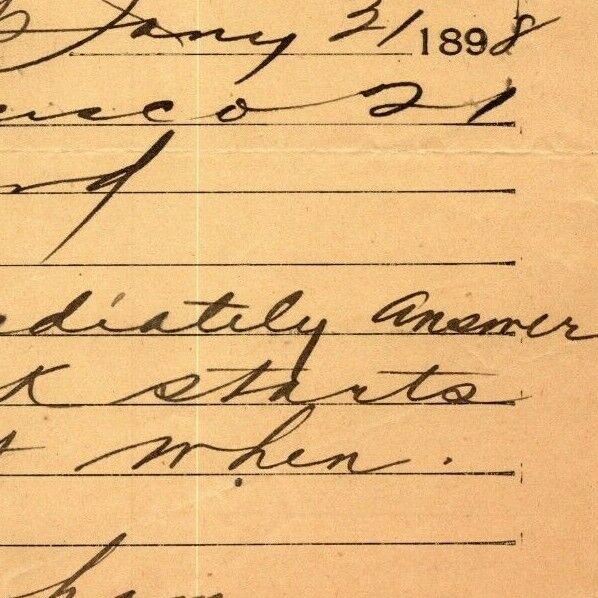 Jany 21 1898
usco 21
rd
ediately answer
k starts
t when.
ham